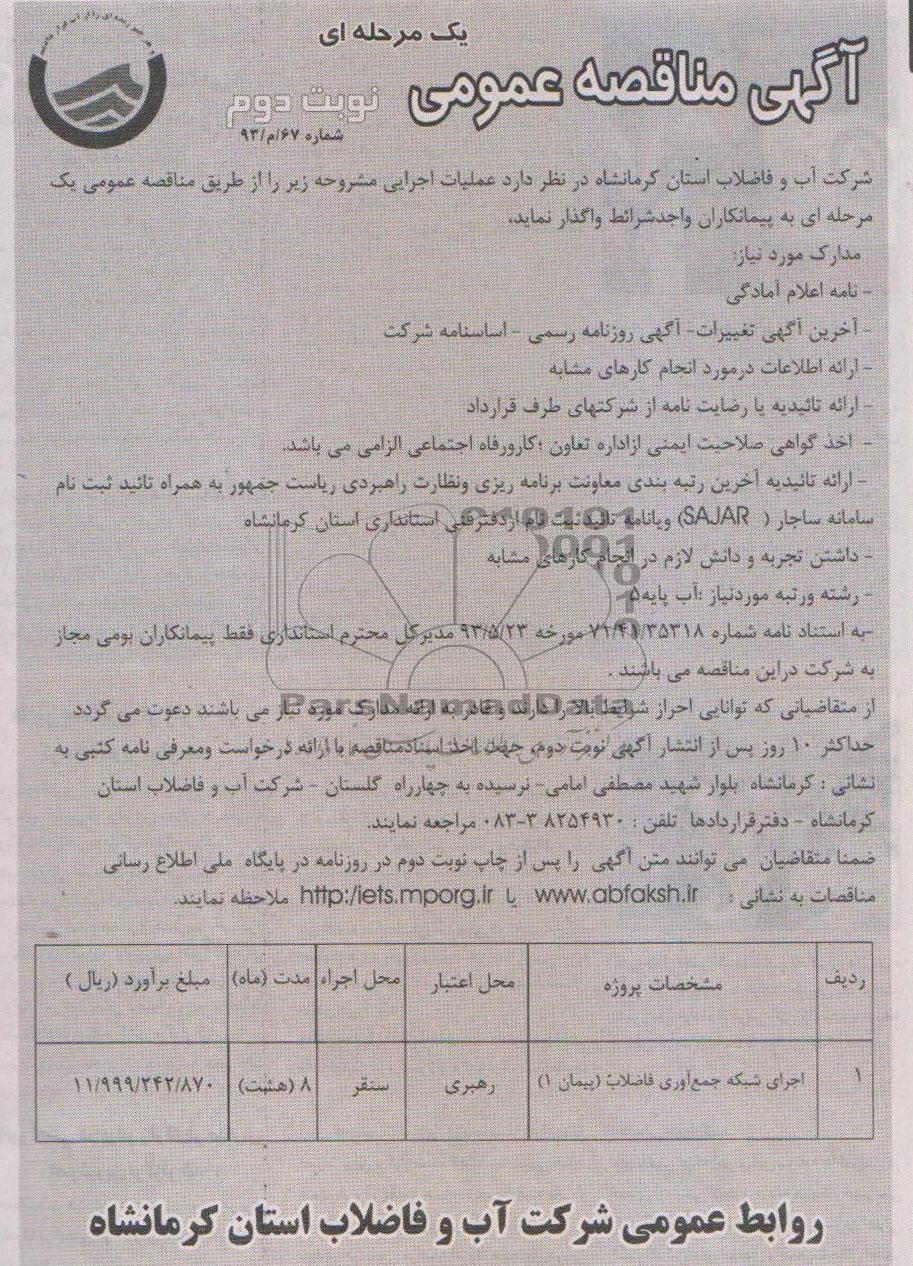 یک مرحله ای
آگهی مناقصه عمومی
نوبت دوم
شماره ۶۷/م/۹۳
شرکت آب و فاضلاب استان کرمانشاه در نظر دارد عملیات اجرایی مشروحه زیر را از طریق مناقصه عمومی یک
مرحله ای به پیمانکاران واجدشرائط واگذار نماید.
مدارک مورد نیاز:
- نامه اعلام آمادگی
- آخرین آگهی تغییرات- آگهی روزنامه رسمی - اساسنامه شرکت
- ارائه اطلاعات درمورد انجام کارهای مشابه
- ارائه تائیدیه یا رضایت نامه از شرکتهای طرف قرارداد
- اخذ گواهی صلاحیت ایمنی ازاداره تعاون ؛کارورفاه اجتماعی الزامی می باشد.
- ارائه تائیدیه آخرین رتبه بندی معاونت برنامه ریزی ونظارت راهبردی ریاست جمهور به همراه تائید ثبت نام
سامانه ساجار ( SAJAR) ویانامه تائیدثبت نام ازدفترفنی استانداری استان کرمانشاه
- داشتن تجربه و دانش لازم در انجام کارهای مشابه
- رشته ورتبه موردنیاز :آب پایه۵
-به استناد نامه شماره ۷۱/۴۱/۳۵۳۱۸ مورخه ۹۳/۵/۲۳ مدیرکل محترم استانداری فقط پیمانکاران بومی مجاز
به شرکت دراین مناقصه می باشند .
ParsNamadData
از متقاضیانی که توانایی احراز شرایط بالا را دارند و قادر به ارائه مدارک مورد نیاز می باشند دعوت می گردد
حداکثر ۱۰ روز پس از انتشار آگهی نوبت دوم، جهت اخذ اسنادمناقصه با ارائه درخواست ومعرفی نامه کتبی به
نشانی : کرمانشاه بلوار شهید مصطفی امامی- نرسیده به چهارراه گلستان - شرکت آب و فاضلاب استان
کرمانشاه - دفترقراردادها تلفن : ۸۲۵۴۹۳۰ ۳-۰۸۳ مراجعه نمایند.
ضمنا متقاضیان می توانند متن آگهی را پس از چاپ نوبت دوم در روزنامه در پایگاه ملی اطلاع رسانی
مناقصات به نشانی : www.abfaksh.ir یا http:/iets.mporg.ir ملاحظه نمایند.
ردیف مشخصات پروژه محل اعتبار محل اجراء مدت (ماه) مبلغ برآورد (ریال )
۱ اجرای شبکه جمع‌آوری فاضلاب (پیمان ۱) رهبری سنقر ۸ (هشت) ۱۱/۹۹۹/۲۴۲/۸۷۰
روابط عمومی شرکت آب و فاضلاب استان کرمانشاه